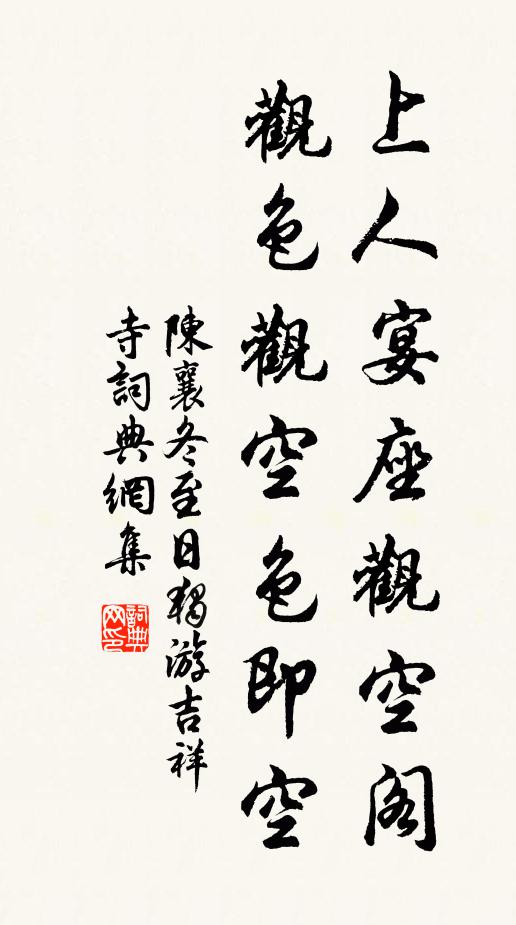 上人宴座觀空阁
觀色觀空色即空
陳襄冬至日獨游吉祥
寺詞典網集
詞典网印